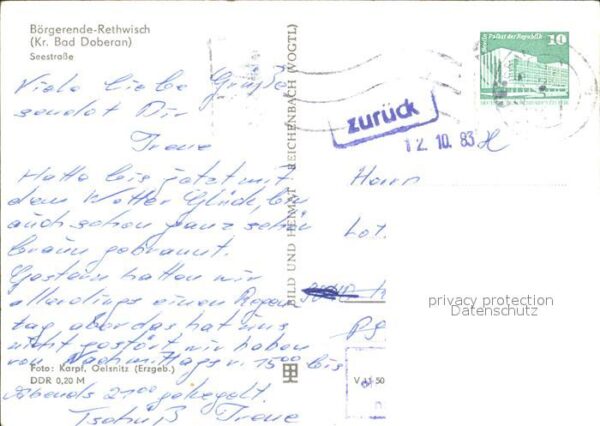 Börgerende-Rethwisch
(Kr. Bad Doberan)
Seestraße
Viele liebe Grüße
sendet Dir
Irene
Hatte bis jetzt mit
dem Wetter Glück, bin
auch schon ganz schön
braun gebrannt.
Gestern hatten wir
allerdings einen Regen
tag aber das hat uns
nicht gestört wir haben
von Nachmittags v. 15⁰⁰ bis
Abends 21⁰⁰ gekegelt.
Tschüß Irene
Foto: Karpf, Oelsnitz (Erzgeb.)
DDR 0,20 M
BILD UND HEIMAT REICHENBACH (VOGTL)
Palast der Republik
10
zurück
12. 10. 83
Herrn
Lot.
privacy protection
Datenschutz
PS
V 11 50